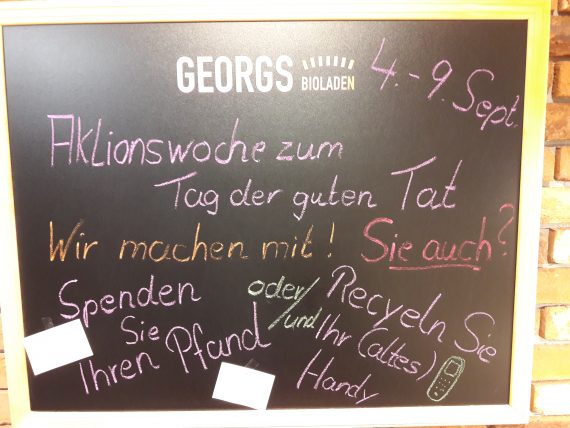 GEORGS BIOLADEN
4.-9. Sept.
Aktionswoche zum
Tag der guten Tat
Wir machen mit! Sie auch?
Spenden
Sie
Ihren Pfand
oder/und
Recyeln Sie
Ihr (altes)
Handy